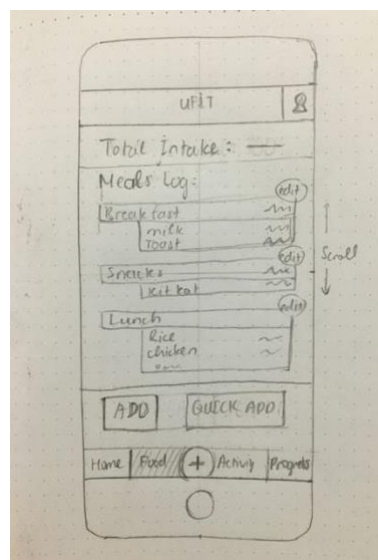 UFIT
Total Intake:
Meals Log:
edit
Breakfast
milk
Toast
edit
Snacks
kitkat
Scroll
edit
Lunch
Rice
chicken
ADD QUICK ADD
Home Food + Activity Progress